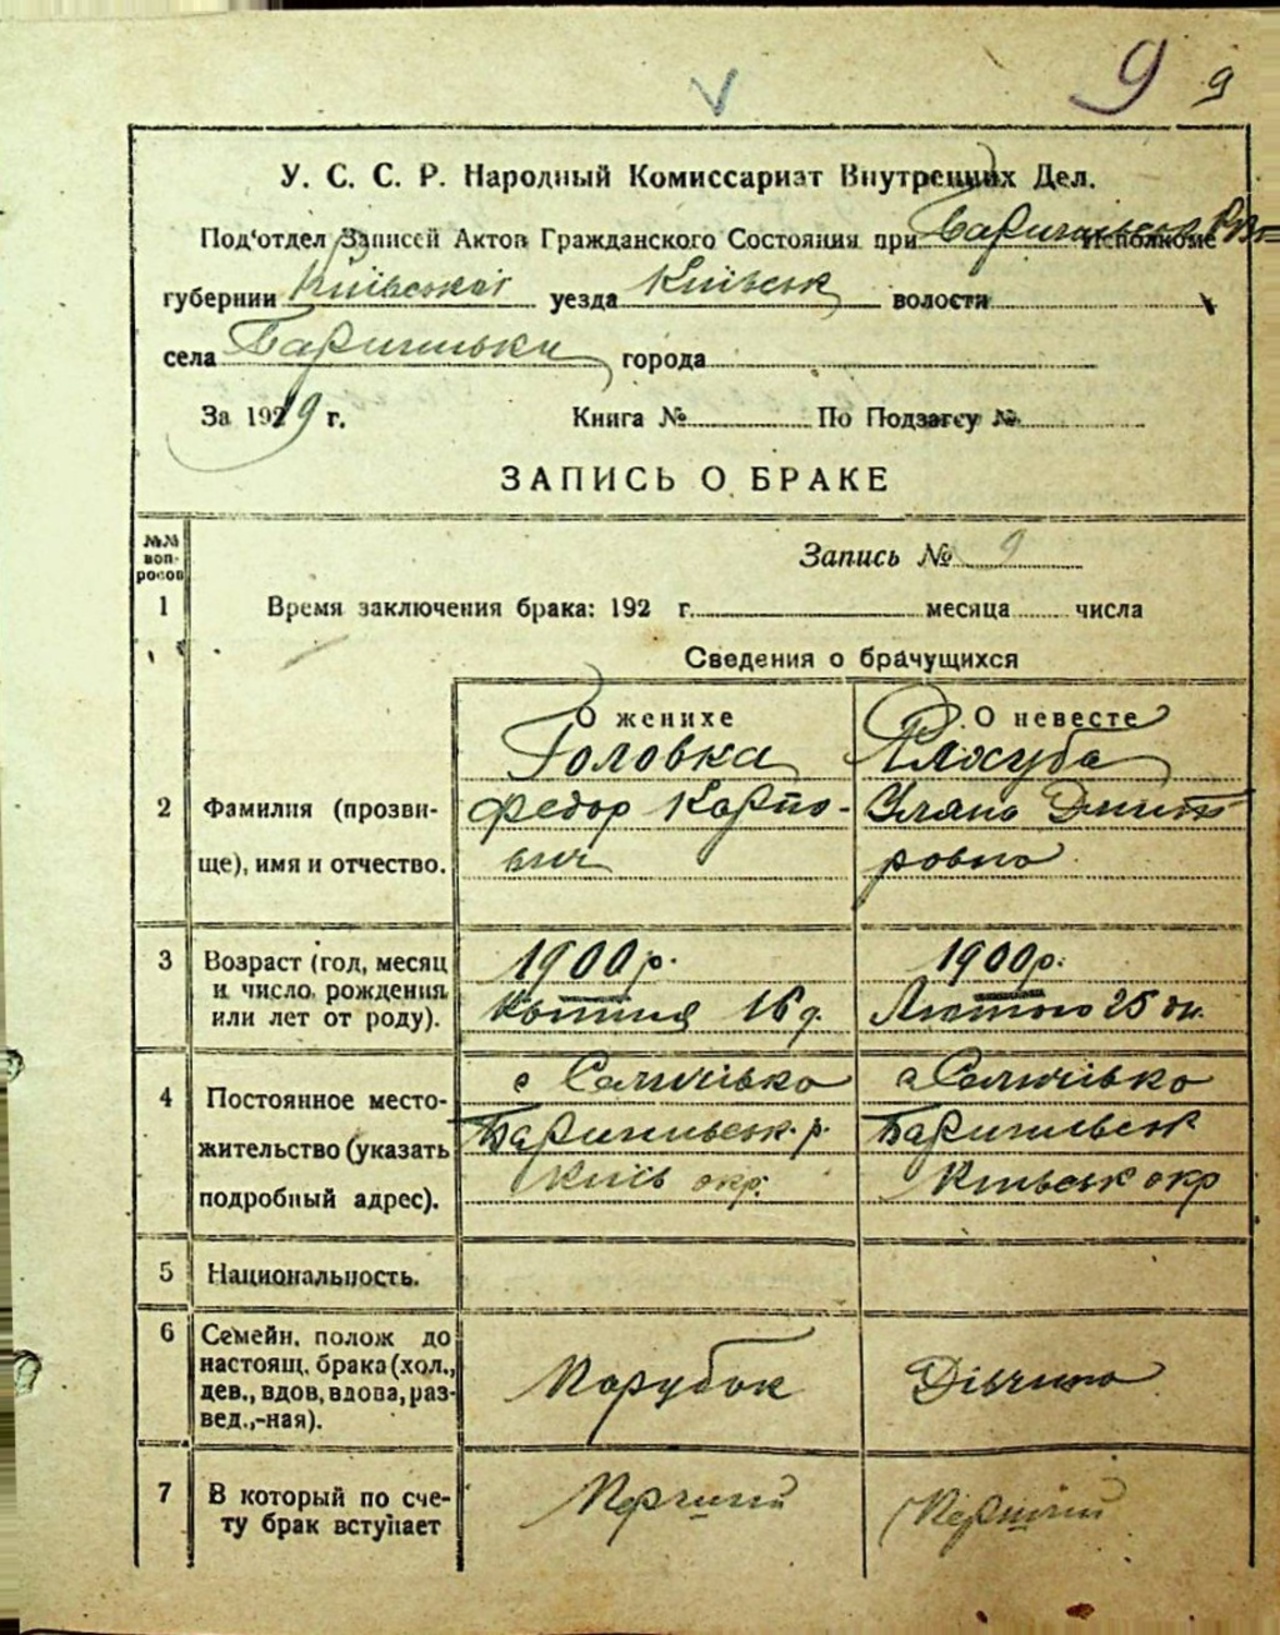 9 9
У. С. С. Р. Народный Комиссариат Внутренних Дел.
Под'отдел Записей Актов Гражданского Состояния при Баришівськ РВК Исполкоме
губернии Київської уезда Київськ волости
села Баришівки города
За 1929 г. Книга № По Подзагсу №
ЗАПИСЬ О БРАКЕ
№№ вопросов
Запись № 9
1 Время заключения брака: 192 г. месяца числа
Сведения о брачущихся
О женихе О невесте
Головка
2 Фамилия (прозви- Федор Карпо- Уляна Дмит
ще), имя и отчество. вич ровна
3 Возраст (год, месяц 1900 р. 1900 р.
и число рождения Квітня 16 д. Лютого 25 дн.
или лет от роду).
4 Постоянное место- с Селичівка с Селичівка
жительство (указать Баришивськ. р. Баришивськ
подробный адрес). Київ окр. Київськ окр
5 Национальность.
6 Семейн. полож до
настоящ. брака (хол., Парубок Дівчина
дев., вдов, вдова, раз-
вед.,-ная).
7 В который по сче- Перший Перший
ту брак вступает